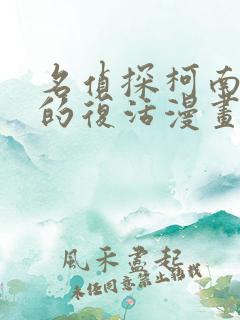 名偵探柯南
的復活漫畫
風禾盡起
未經同意禁止轉載